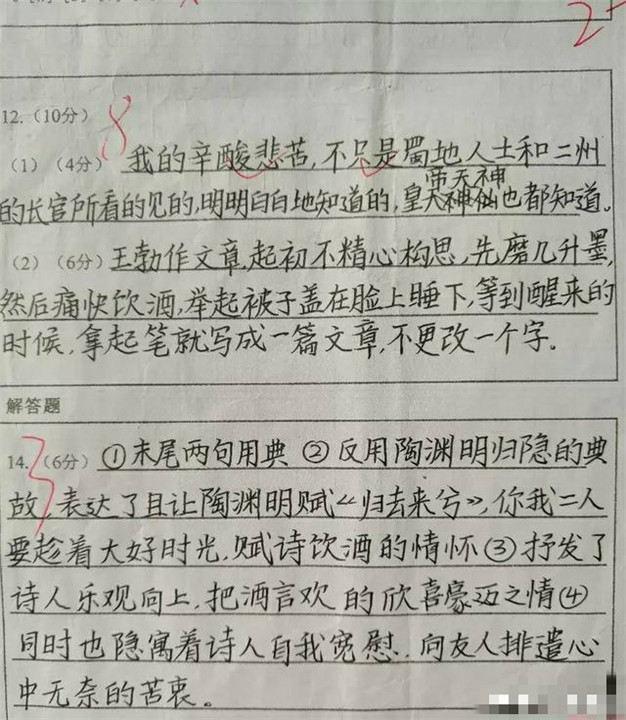 2
12.（10分）
8
（1）（4分） 我的辛酸悲苦,不只是蜀地人士和二州
帝天神
的长官所看的见的,明明白白地知道的,皇天神仙也都知道。
（2）（6分）王勃作文章,起初不精心构思,先磨几升墨,
然后痛快饮酒,举起被子盖在脸上睡下,等到醒来的
时候,拿起笔就写成一篇文章,不更改一个字。
解答题
14.（6分）①末尾两句用典 ②反用陶渊明归隐的典
3
故,表达了且让陶渊明赋《归去来兮》,你我二人
要趁着大好时光,赋诗饮酒的情怀③抒发了
诗人乐观向上,把酒言欢的欣喜豪迈之情④
同时也隐寓着诗人自我宽慰、向友人排遣心
中无奈的苦衷。